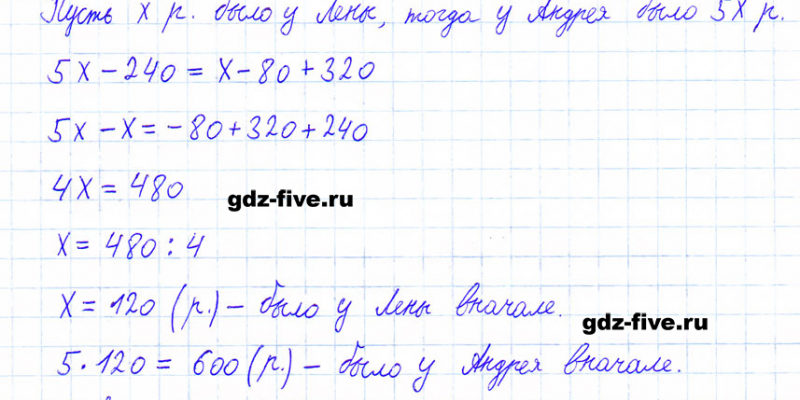 Пусть х р. было у Лены, тогда у Андрея было 5х р.
5х - 240 = х - 80 + 320
5х - х = - 80 + 320 + 240
4х = 480
gdz-five.ru
х = 480 : 4
х = 120 (р.) – было у Лены вначале.
gdz-five.ru
5 · 120 = 600 (р.) – было у Андрея вначале.